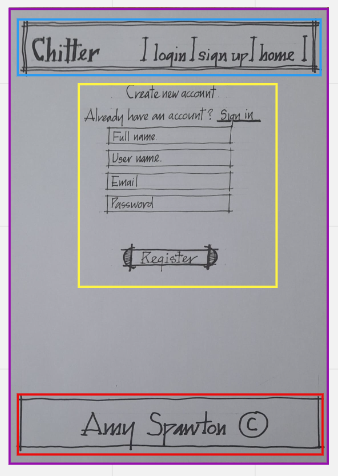 Chitter | login | sign up | home |
Create new account
Already have an account? Sign in
Full name
User name.
Email
Password
Register
Amy Spawton ©